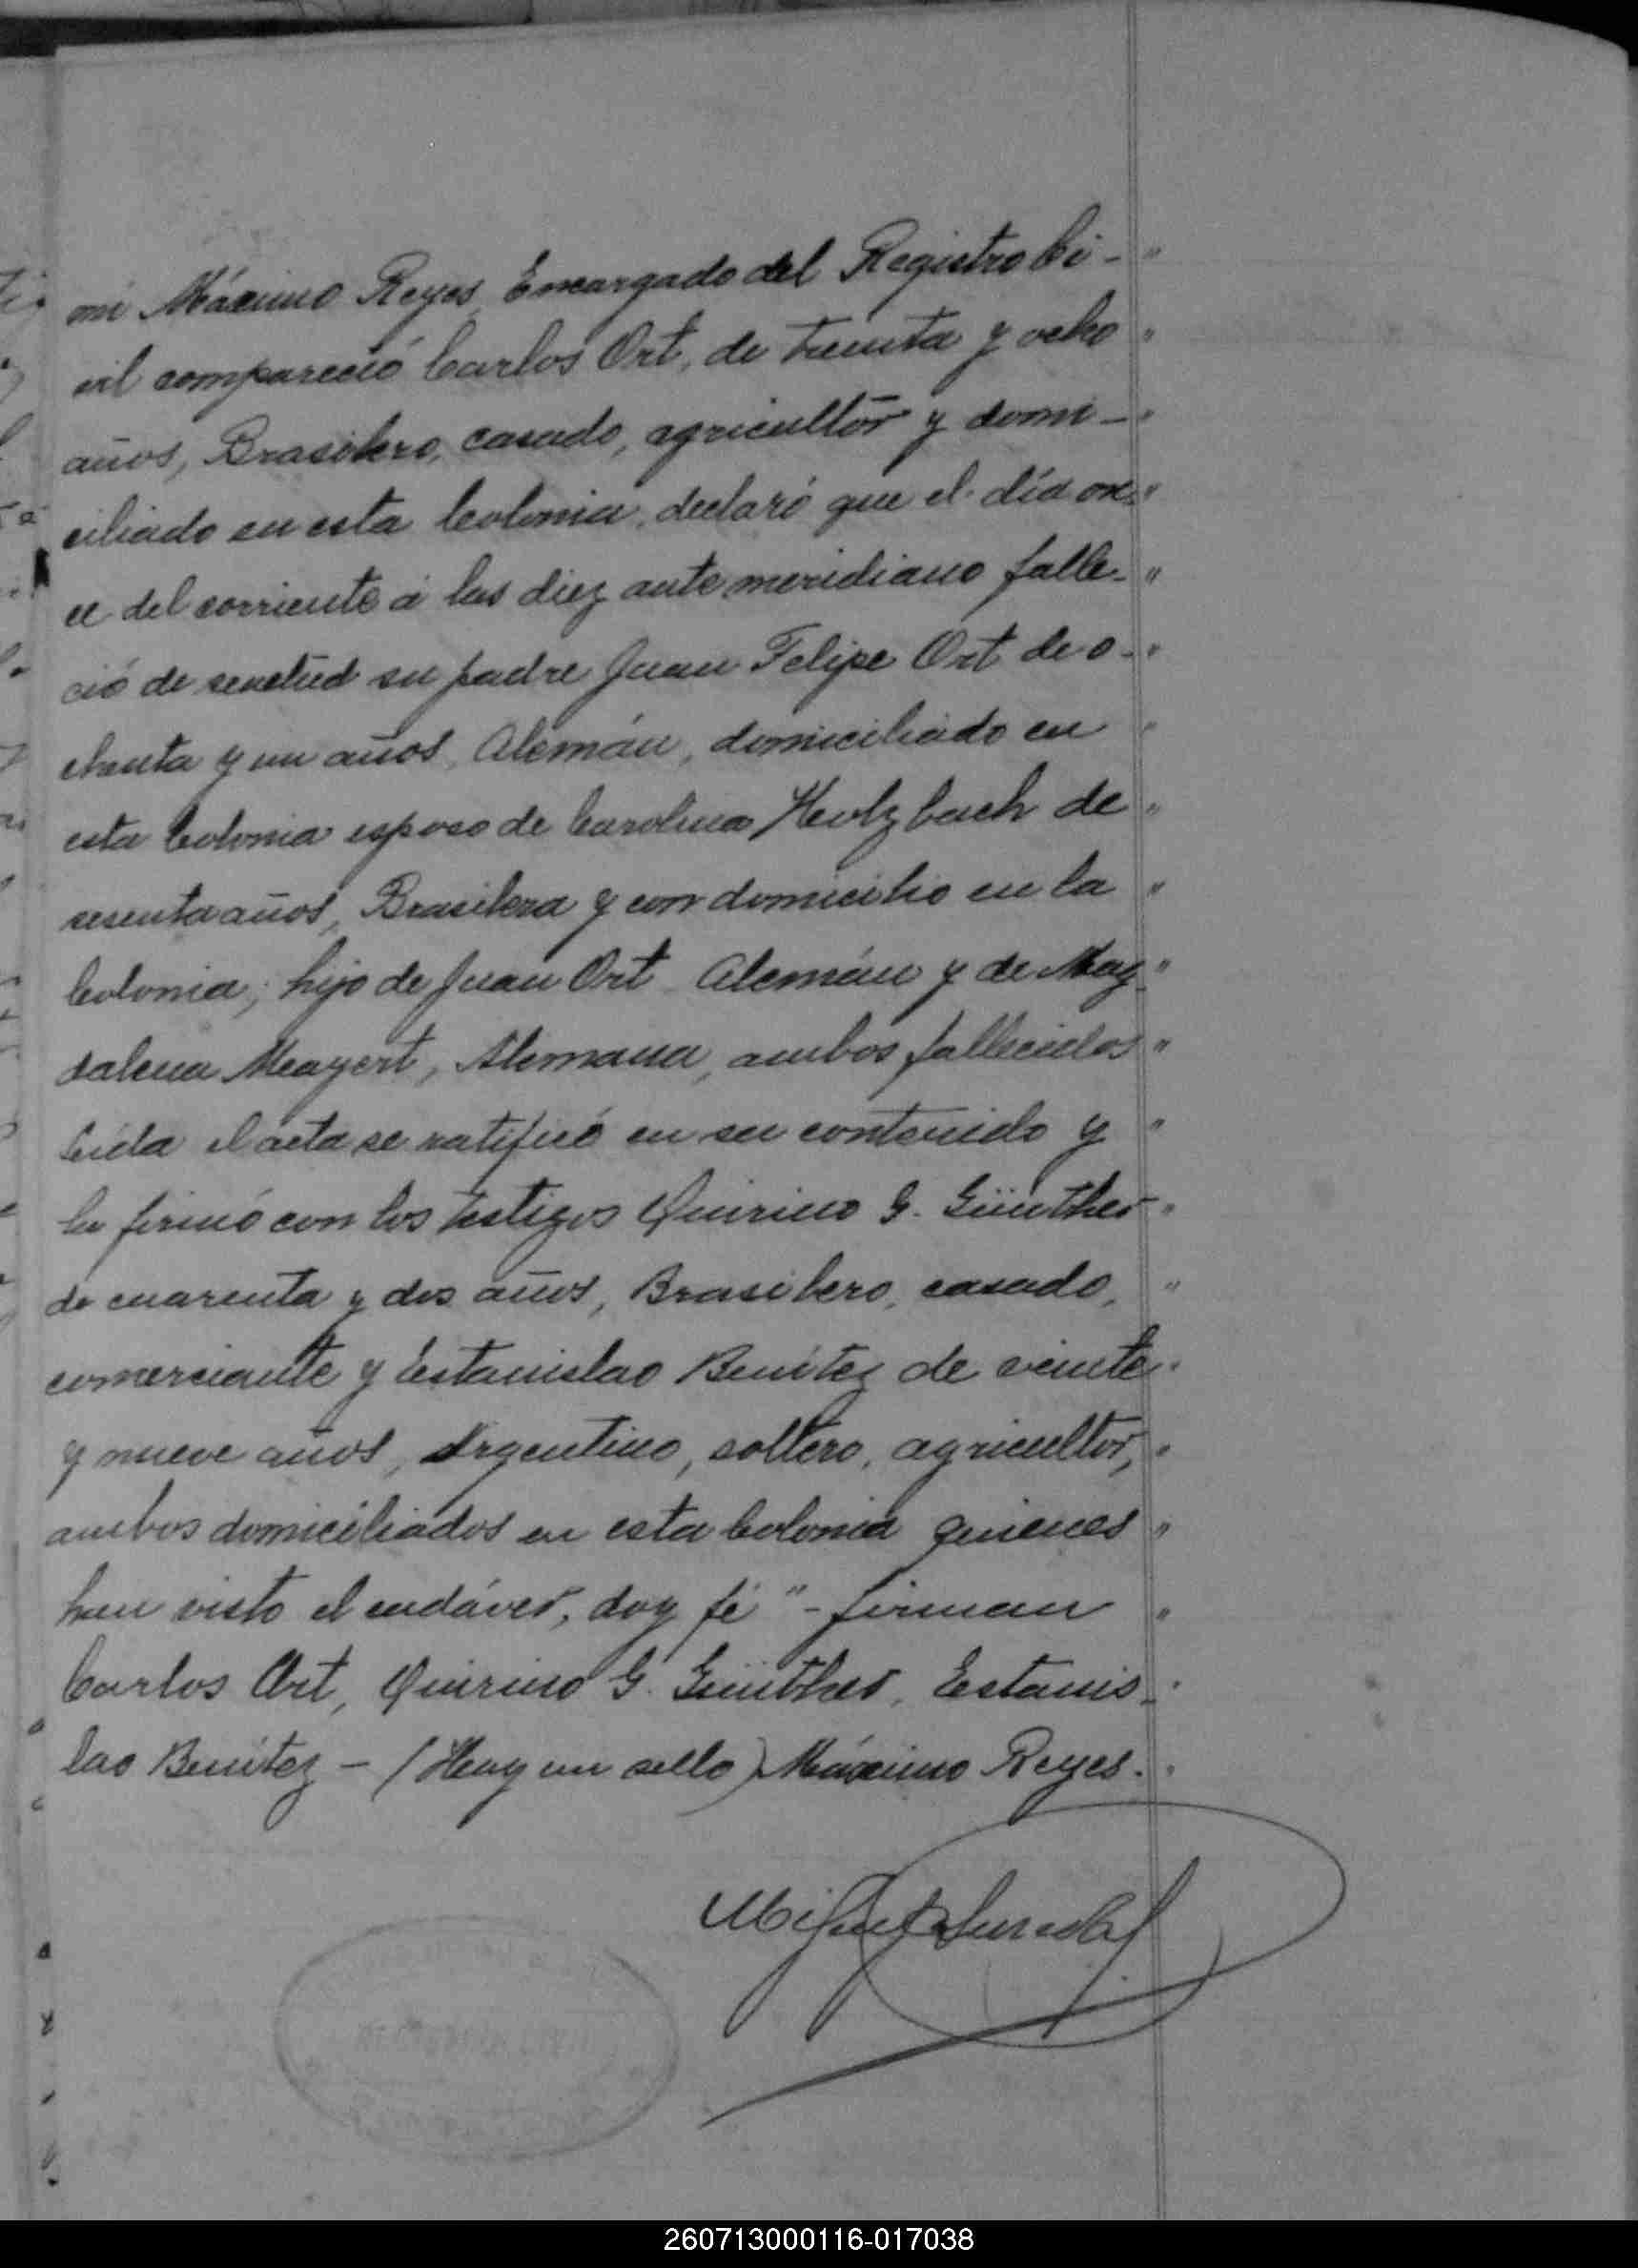 mi Máximo Reyes, Encargado del Registro Ci-"
vil compareció Carlos Ort, de treinta y ocho "
años, Brasilero, casado, agricultor y domi-"
ciliado en esta Colonia, declaró que el día on-"
ce del corriente á las diez ante meridiano falle-"
ció de senetud su padre Juan Felipe Ort de o-"
chenta y un años, Alemán, domiciliado en "
esta Colonia esposo de Carolina Holzbach de "
sesenta años, Brasilera y con domicilio en la "
Colonia; hijo de Juan Ort Alemán y de Mag-"
dalena Meayert, Alemana, ambos fallecidos "
Leída el acta se ratificó en su contenido y "
la firmó con los testigos Quirino G. Günther "
de cuarenta y dos años, Brasilero, casado, "
comerciante y Estanislao Benítez de veinte "
y nueve años, Argentino, soltero, agricultor, "
ambos domiciliados en esta Colonia quienes "
han visto el cadáver, doy fé" - firman "
Carlos Ort, Quirino G. Günther, Estanis- "
lao Benítez - (Hay un sello) Máximo Reyes. "
260713000116-017038